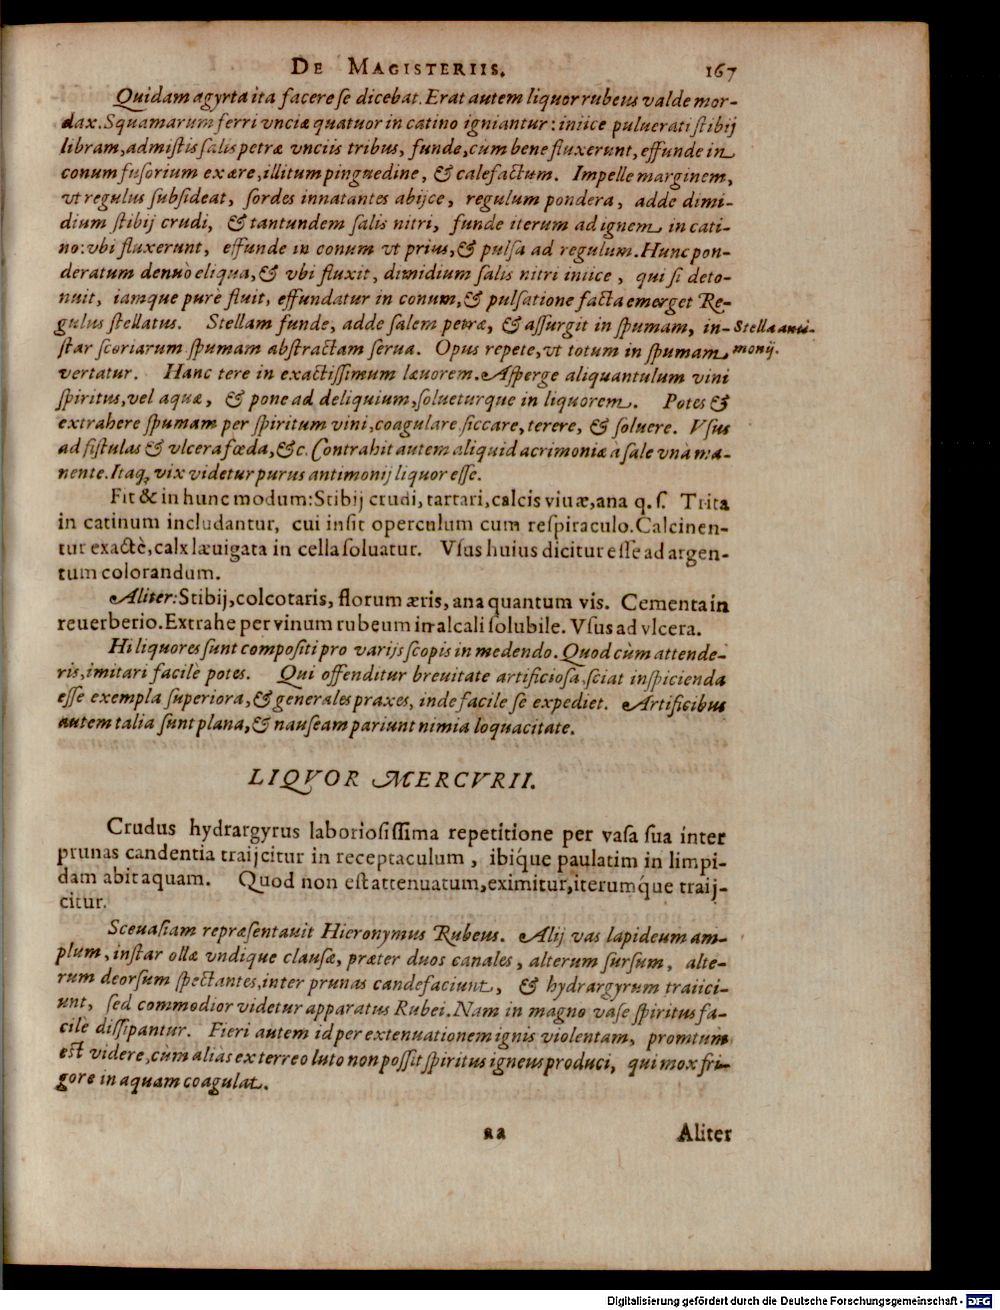 DE MAGISTERIIS. 167
Quidam agyrta ita facere se dicebat. Erat autem liquor rubeus valde mor-
dax. Squamarum ferri vnciæ quatuor in catino igniantur: iniice puluerati stibij
libram, admistis salis petræ vnciis tribus, funde, cum bene fluxerunt, effunde in
conum fusorium ex ære, illitum pinguedine, & calefactum. Impelle marginem,
vt regulus subsideat, sordes innatantes abijce, regulum pondera, adde dimi-
dium stibij crudi, & tantundem salis nitri, funde iterum ad ignem in cati-
no: vbi fluxerunt, effunde in conum vt prius, & pulsa ad regulum. Hunc pon-
deratum denuò eliqua, & vbi fluxit, dimidium salis nitri iniice, qui si deto-
nuit, iamque purè fluit, effundatur in conum, & pulsatione facta emerget Re-
gulus stellatus. Stellam funde, adde salem petræ, & assurgit in spumam, in-
Stella anti-
star scoriarum spumam abstractam serua. Opus repete, vt totum in spumam
monij.
vertatur. Hanc tere in exactissimum læuorem. Asperge aliquantulum vini
spiritus, vel aquæ, & pone ad deliquium, solueturque in liquorem. Potes &
extrahere spumam per spiritum vini, coagulare, siccare, terere, & soluere. Vsus
ad fistulas & vlcera fœda, &c. Contrahit autem aliquid acrimoniæ à sale vnà ma-
nente. Itaq; vix videtur purus antimonij liquor esse.
Fit & in hunc modum: Stibij crudi, tartari, calcis viuæ, ana q. s. Trita
in catinum includantur, cui insit operculum cum respiraculo. Calcinen-
tur exactè, calx læuigata in cella soluatur. Vsus huius dicitur esse ad argen-
tum colorandum.
Aliter: Stibij, colcotaris, florum æris, ana quantum vis. Cementa in
reuerberio. Extrahe per vinum rubeum in alcali solubile. Vsus ad vlcera.
Hi liquores sunt compositi pro varijs scopis in medendo. Quod cum attende-
ris, imitari facilè potes. Qui offenditur breuitate artificiosa, sciat inspicienda
esse exempla superiora, & generales praxes, inde facile se expediet. Artificibus
autem talia sunt plana, & nauseam pariunt nimia loquacitate.
LIQVOR MERCVRII.
Crudus hydrargyrus laboriosissima repetitione per vasa sua inter
prunas candentia traijcitur in receptaculum, ibíque paulatim in limpi-
dam abit aquam. Quod non est attenuatum, eximitur, iterumque traij-
citur.
Sceuasiam repræsentauit Hieronymus Rubeus. Alij vas lapideum am-
plum, instar ollæ vndique clausæ, præter duos canales, alterum sursum, alte-
rum deorsum spectantes, inter prunas candefaciunt, & hydrargyrum traiici-
unt, sed commodior videtur apparatus Rubei. Nam in magno vase spiritus fa-
cilè dissipantur. Fieri autem id per extenuationem ignis violentam, promtum
est videre, cùm aliàs ex terreo luto non possit spiritus igneus produci, qui mox fri-
gore in aquam coagulat.
aa Aliter
Digitalisierung gefördert durch die Deutsche Forschungsgemeinschaft - DFG